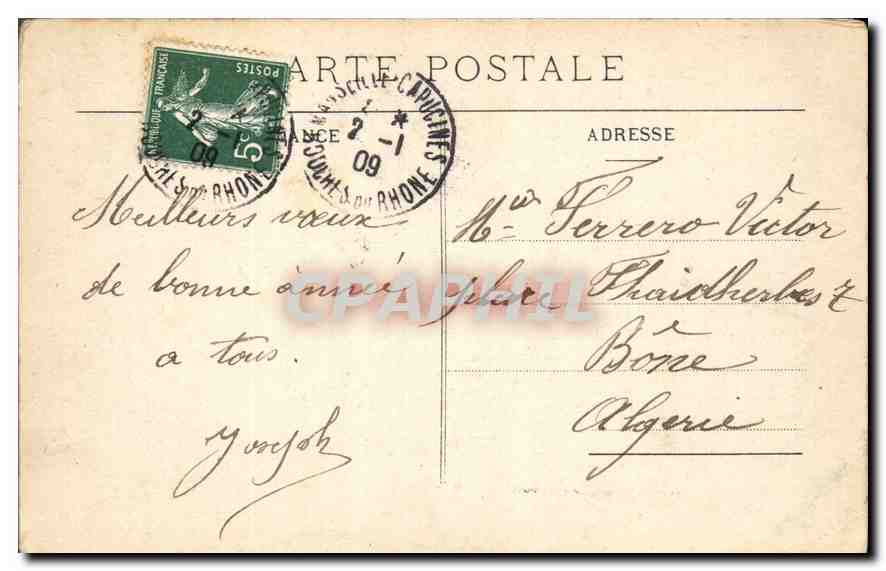 CARTE POSTALE
CORRESPONDANCE
ADRESSE
RÉPUBLIQUE FRANÇAISE
POSTES
5c
MARSEILLE-CAPUCINES
2 -1
09
BOUCHES DU RHONE
2 -1
09
BOUCHES DU RHONE
Meilleurs vœux
de bonne année
a tous.
Joseph
Ferrero Victor
place Thaidherbes 7
Bône
Algerie
CPAPHIL